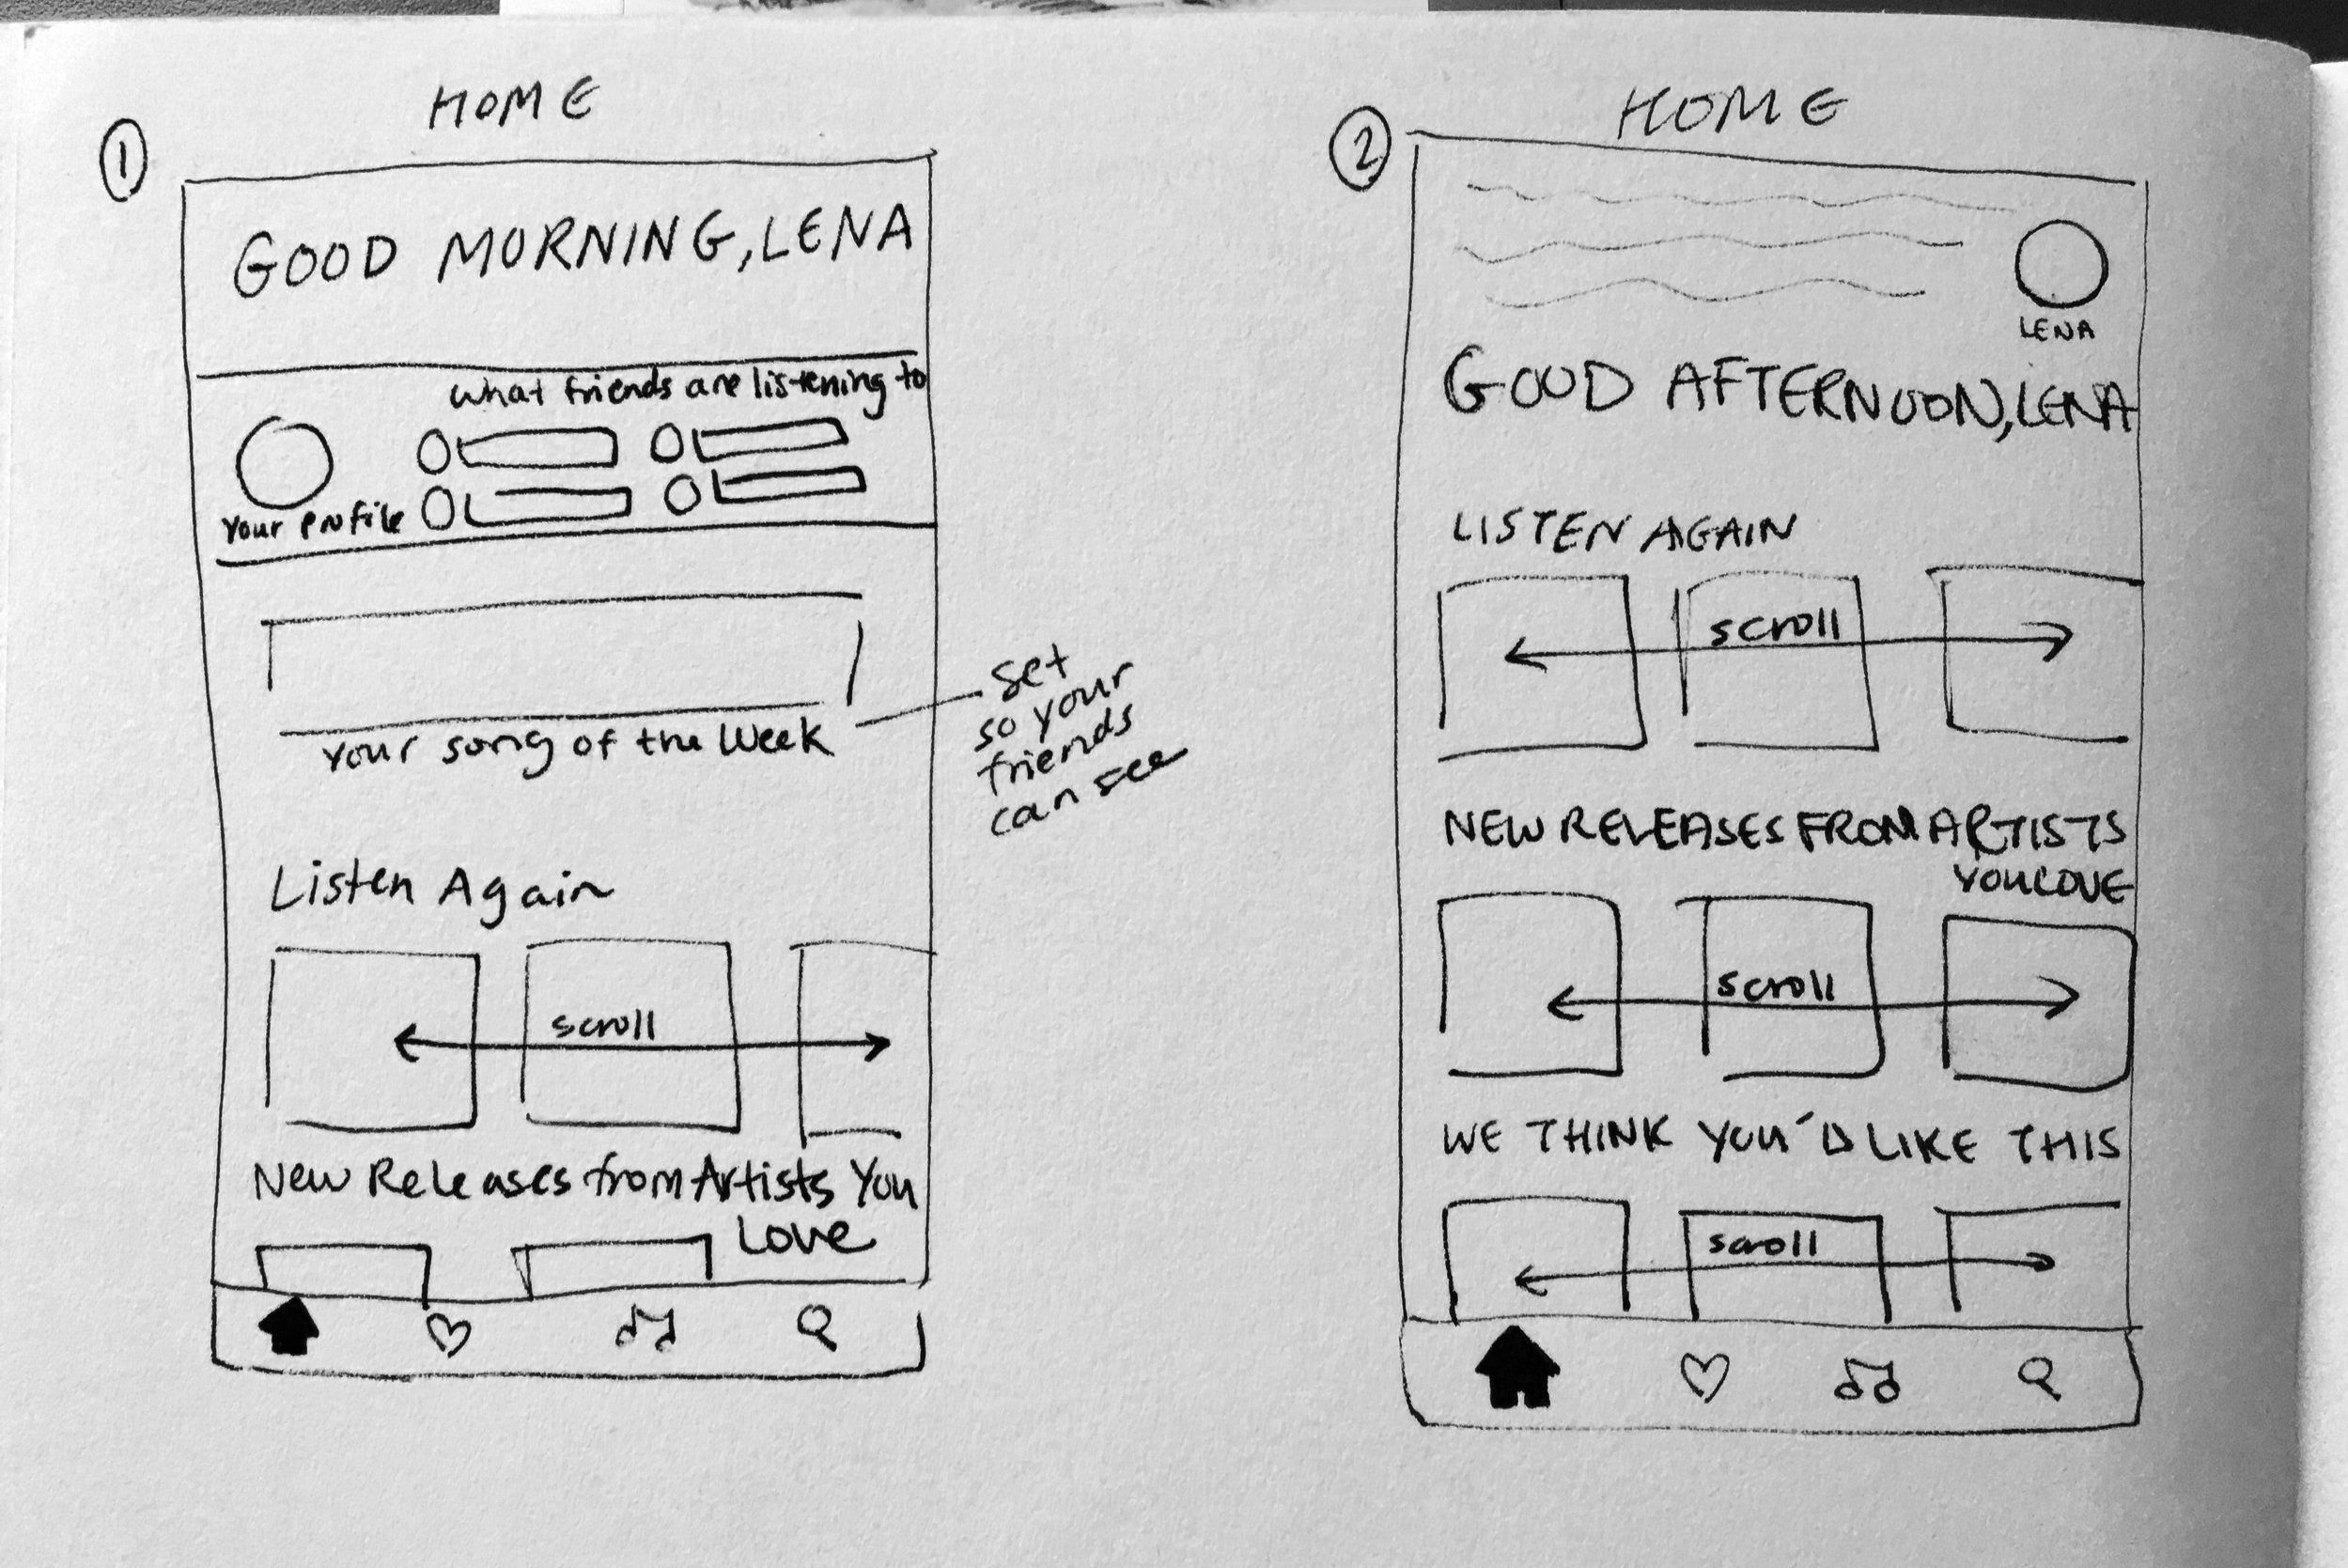 1
HOME
GOOD MORNING, LENA
What friends are listening to
Your Profile
Your song of the Week
set
so your
friends
can see
Listen Again
scroll
New Releases from Artists You
Love
2
HOME
LENA
GOOD AFTERNOON, LENA
LISTEN AGAIN
scroll
NEW RELEASES FROM ARTISTS
YOU LOVE
scroll
WE THINK YOU'D LIKE THIS
scroll